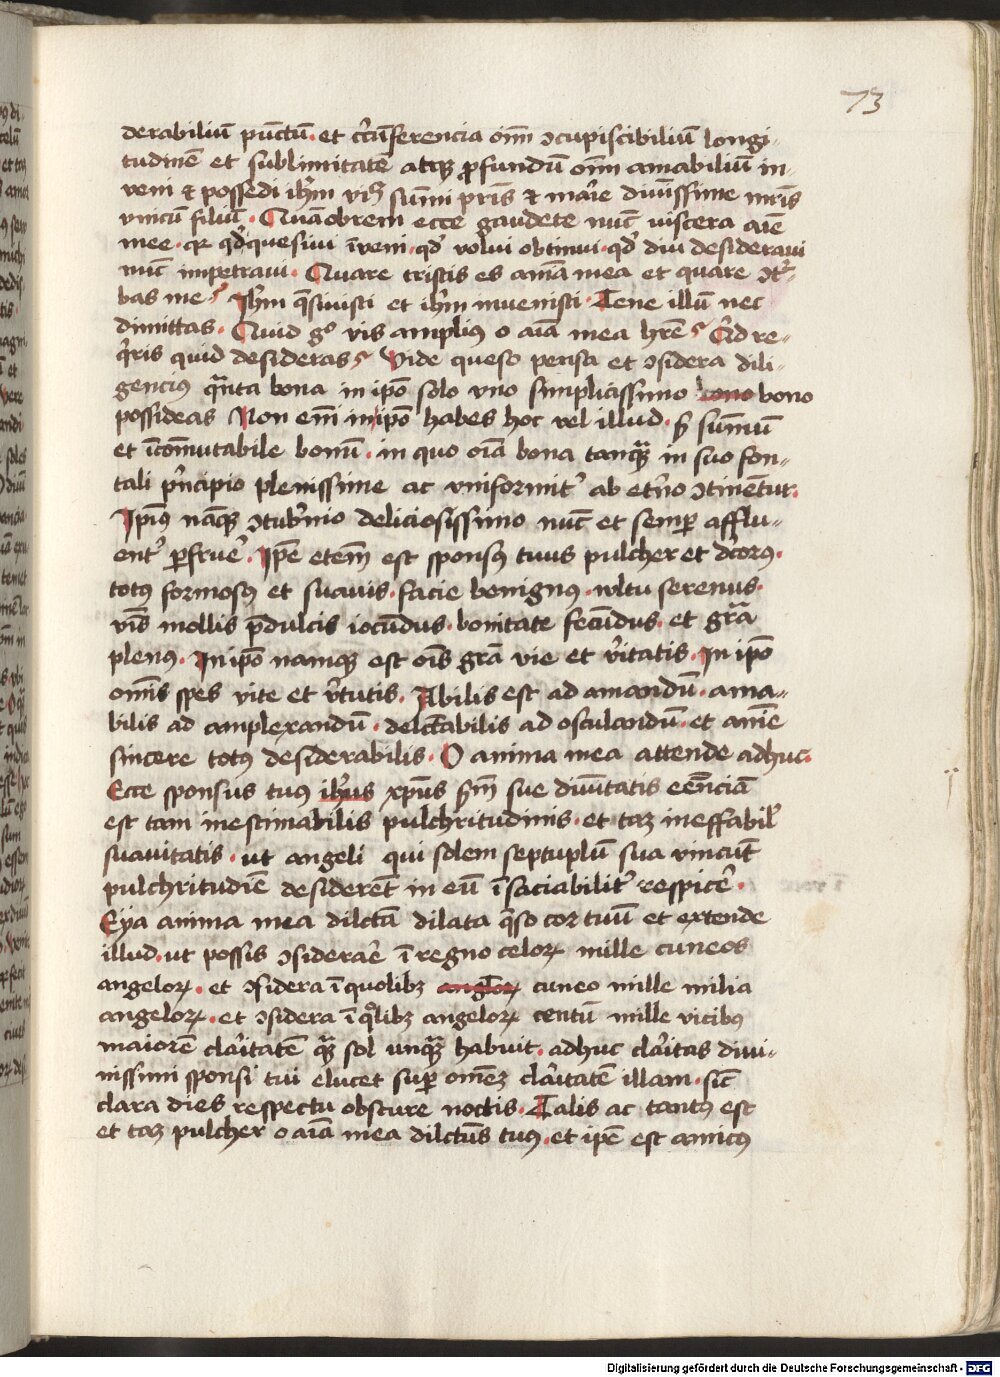 73
derabiliū pūctū. et c̄cūferencia oīm ɔcupiscibiliū longi-
tudinē et sublimitatē atqꝫ ꝓfundū oīm amabiliū in-
veni et possedi ih̄m summi pr̄is et mar̄ie divīssime mr̄is
vnicū filiū. Quāobrem ecce gaudete nūc viscera aīe
mee. qr qd̄ quesiui īveni. qd̄ volui obtinui. qd̄ diu desideraui
nūc impetraui. Quare tristis es aīma mea et quare ɔt᷑-
bas me? Ih̄m q̄siuisti et ih̄m invenisti. Tene illū nec
dimittas. Quid gͦ vis ampliꝰ o aīa mea hr̄e? Qid re-
q̄ris quid desideras? Vide queso pensa et ɔsidera dili-
genciꝰ qᷓnta bona in ip̄o solo vno simplicissimo bono bono
possideas Non em̄ in ip̄o habes hoc vel illud. sꝫ summū
et īcōmutabile bonū. in quo oīa bona tanqᷓꝫ in suo fon-
tali pͥncipio plenissime ac vniformit᷑ ab et᷑no ɔtinent᷑ur.
Ipīꝰ nāqꝫ ɔtub᷑nio deliciosissimo nūc et semꝑ afflu-
ent᷑ ꝑfrue᷑. Ip̄e etem̄ est sponsꝰ tuus pulcher et dc̄orꝰ.
totꝰ formosꝰ et suavis. facie benignꝰ. vultu serenus.
vīs mollis p̄dulcis iocūdus. bonitate fecūdus. et gr̄a
plenꝰ. In ip̄o namqꝫ est oīs gr̄a vie et v᷑itatis. In ip̄o
omīs spes vite et v᷑tutis. Abilis est ad amandū. ama-
bilis ad amplexandū. delc̄tabilis ad osculandū. et aīne
sincere totꝰ desiderabilis. O anima mea attende adhuc.
Ecce sponsus tuꝰ ih̄us xp̄us sm̄ sue diuītatis eēnciā
est tam inestimabilis pulchritudinis. et taꝫ ineffabil᷑
suauitatis. ut angeli qui solem septuplū sua vincūt
pulchritudīe desiderēt in eū īsaciabilit᷑ respice᷑.
Eya anima mea dilc̄ta dilata q̄so cor tuū et extende
illud. ut possis ɔsiderare᷑ ī regno celoꝝ mille cuneos
angeloꝝ. et ɔsidera ī quolibꝫ angloꝝ cuneo mille milia
angeloꝝ. et ɔsidera ī qͦlibꝫ angeloꝝ centū mille vicibꝰ
maiorē cla᷑itatē qᷓꝫ sol unqᷓꝫ habuit. adhuc cla᷑itas divi-
nissimi sponsi tui elucet suꝑ omēꝫ cla᷑itatē illam. sic̄
clara dies respectu obscure noctis. Talis ac tantꝰ est
et taꝫ pulcher o aīa mea dilc̄tūs tuꝰ. et ip̄e est amicꝰ
Digitalisierung gefördert durch die Deutsche Forschungsgemeinschaft - DFG